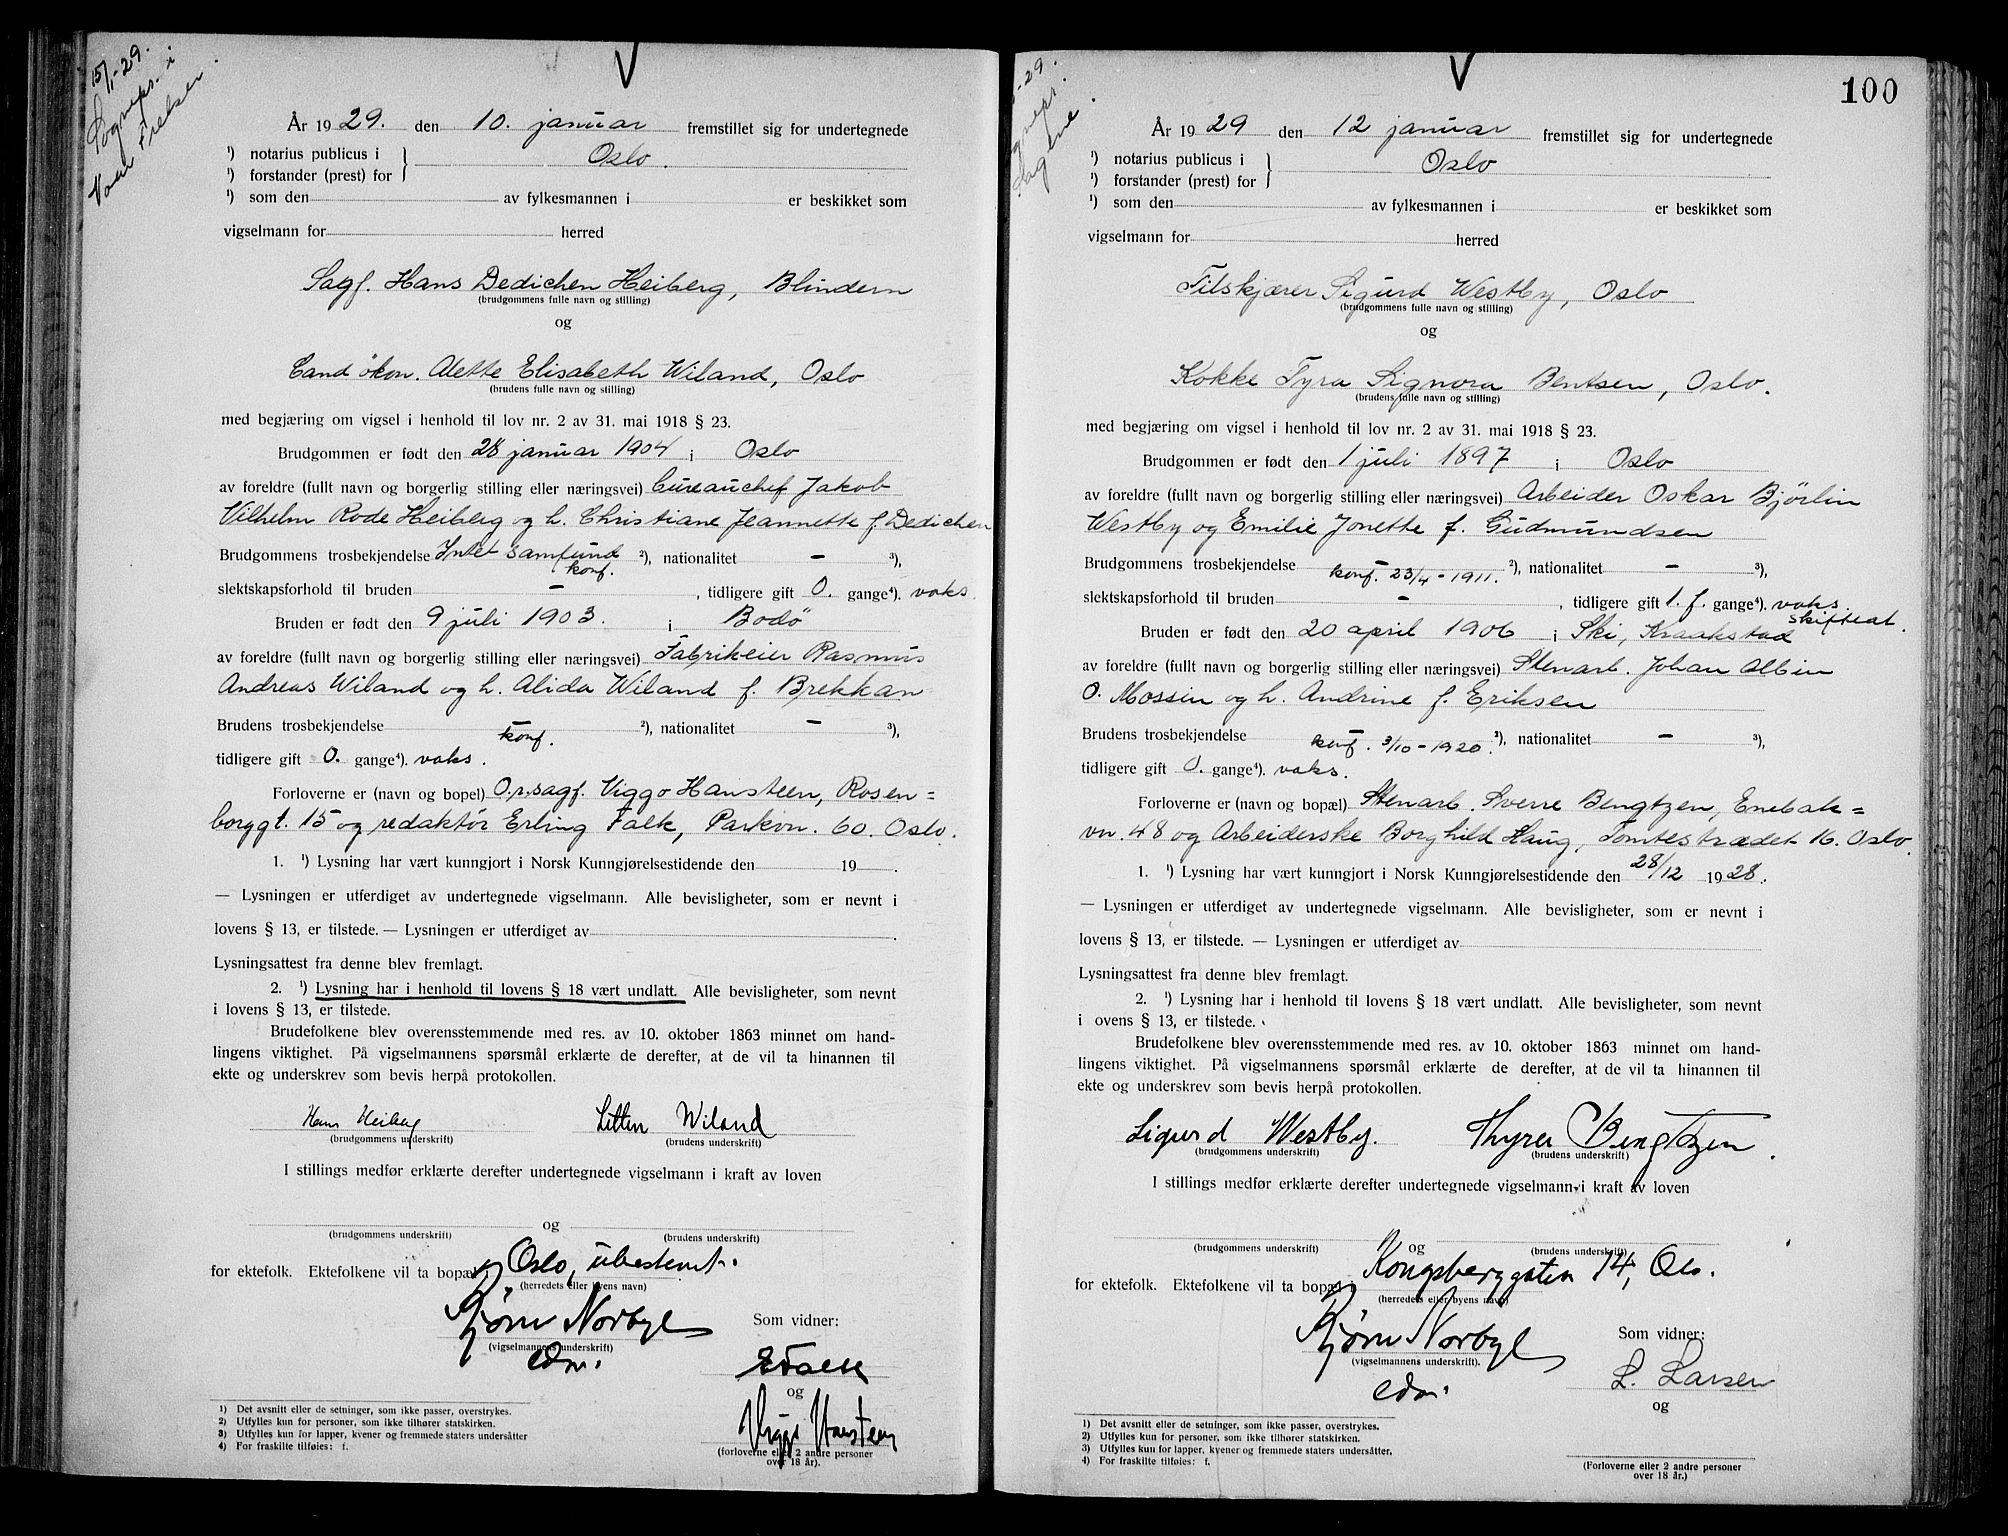 15/1-29.
Sogneps. i
Vaar Frelser.
År 1929. den 10. januar fremstillet sig for undertegnede
¹) notarius publicus i } Oslo.
¹) forstander (prest) for
¹) som den av fylkesmannen i er beskikket som
vigselmann for herred
Sagf. Hans Dedichen Heiberg, Blindern
(brudgommens fulle navn og stilling)
og
Cand økon. Alette Elisabeth Wiland, Oslo
(brudens fulle navn og stilling)
med begjæring om vigsel i henhold til lov nr. 2 av 31. mai 1918 § 23.
Brudgommen er født den 28 januar 1904 i Oslo
av foreldre (fullt navn og borgerlig stilling eller næringsvei) Bureauchef Jakob
Vilhelm Rode Heiberg og h. Christiane Jeannette f. Dedichen
Brudgommens trosbekjendelse Intet samfund ²), nationalitet – ³),
konf.
slektskapsforhold til bruden – , tidligere gift 0. gange⁴). voks.
Bruden er født den 9 juli 1903. i Bodö
av foreldre (fullt navn og borgerlig stilling eller næringsvei) Fabrikeier Rasmus
Andreas Wiland og h. Alida Wiland f. Brekkan
Brudens trosbekjendelse – ²), nationalitet – ³),
konf.
tidligere gift 0. gange⁴). voks.
Forloverne er (navn og bopel) O.r.sagf. Viggo Hansteen, Rosen=
borggt. 15 og redaktör Erling Falk, Parkvn. 60. Oslo.
1. ¹) Lysning har vært kunngjort i Norsk Kunngjørelsestidende den 19 .
— Lysningen er utferdiget av undertegnede vigselmann. Alle bevisligheter, som er nevnt i
lovens § 13, er tilstede. — Lysningen er utferdiget av .
Lysningsattest fra denne blev fremlagt.
2. ¹) Lysning har i henhold til lovens § 18 vært undlatt. Alle bevisligheter, som nevnt
i lovens § 13, er tilstede.
Brudefolkene blev overensstemmende med res. av 10. oktober 1863 minnet om hand-
lingens viktighet. På vigselmannens spørsmål erklærte de derefter, at de vil ta hinannen til
ekte og underskrev som bevis herpå protokollen.
Hans Heiberg Litten Wiland
(brudgommens underskrift) (brudens underskrift)
I stillings medfør erklærte derefter undertegnede vigselmann i kraft av loven
og
(brudgommens underskrift) (brudens underskrift)
for ektefolk. Ektefolkene vil ta bopæl Oslo, ubestemt.
(herredets eller byens navn)
Bjørn Norbye Som vidner:
(vigselmannens underskrift)
edm. E Falk
og
Viggo Hansteen
(forloverne eller 2 andre personer
over 18 år).
1) Det avsnitt eller de setninger, som ikke passer, overstrykes.
2) Utfylles kun for personer, som ikke tilhører statskirken.
3) Utfylles kun for lapper, kvener og fremmede staters undersåtter
4) For fraskilte tilføies: f.
100
-29.
Sagene.
År 1929 den 12 januar fremstillet sig for undertegnede
¹) notarius publicus i } Oslo
¹) forstander (prest) for
¹) som den av fylkesmannen i er beskikket som
vigselmann for herred
Tilskjærer Sigurd Westby, Oslo
(brudgommens fulle navn og stilling)
og
Kokke Tyra Signora Bentsen, Oslo.
(brudens fulle navn og stilling)
med begjæring om vigsel i henhold til lov nr. 2 av 31. mai 1918 § 23.
Brudgommen er født den 1 juli 1897 i Oslo
av foreldre (fullt navn og borgerlig stilling eller næringsvei) Arbeider Oskar Bjørlin
Westby og Emilie Jonette f. Gudmundsen
Brudgommens trosbekjendelse – ²), nationalitet – ³),
konf. 23/4-1911.
slektskapsforhold til bruden – , tidligere gift 1. f. gange⁴). voks.
skifteat.
Bruden er født den 20 april 1906 i Ski, Kraakstad
av foreldre (fullt navn og borgerlig stilling eller næringsvei) Stenarb. Johan Albin
O. Mossin og h. Andrine f. Eriksen
Brudens trosbekjendelse – ²), nationalitet – ³),
konf. 3/10-1920.
tidligere gift 0. gange⁴). voks.
Forloverne er (navn og bopæl) Stenarb. Sverre Bengtzen, Enebak=
vn. 48 og Arbeiderske Borghild Haug, Tomtestrædet 16. Oslo.
1. ¹) Lysning har vært kunngjort i Norsk Kunngjørelsestidende den 28/12 1928.
— Lysningen er utferdiget av undertegnede vigselmann. Alle bevisligheter, som er nevnt i
lovens § 13, er tilstede. — Lysningen er utferdiget av
Lysningsattest fra denne blev fremlagt.
2. ¹) Lysning har i henhold til lovens § 18 vært undlatt. Alle bevisligheter, som nevnt
i ovens § 13, er tilstede.
Brudefolkene blev overensstemmende med res. av 10. oktober 1863 minnet om hand-
lingens viktighet. På vigselmannens spørsmål erklærte de derefter, at de vil ta hinannen til
ekte og underskrev som bevis herpå protokollen.
Sigurd Westby. Thyra Bengtzen.
(brudgommens underskrift) (brudens underskrift)
I stillings medfør erklærte derefter undertegnede vigselmann i kraft av loven
og
(brudgommens underskrift) (brudens underskrift)
for ektefolk. Ektefolkene vil ta bopæl Kongsberggaten 14, Oslo.
(herredets eller byens navn)
Bjørn Norbye Som vidner:
(vigselmannens underskrift).
edm. L. Larsen
og
(Forloverne eller 2 andre personer
over 18 år.)
1) Det avsnitt eller de setninger, som ikke passer, overstrykes.
2) Utfylles kun for personer, som ikke tilhører statskirken.
3) Utfylles kun for lapper, kvener og fremmede staters undersåtter.
4) For fraskilte tilføies: f.